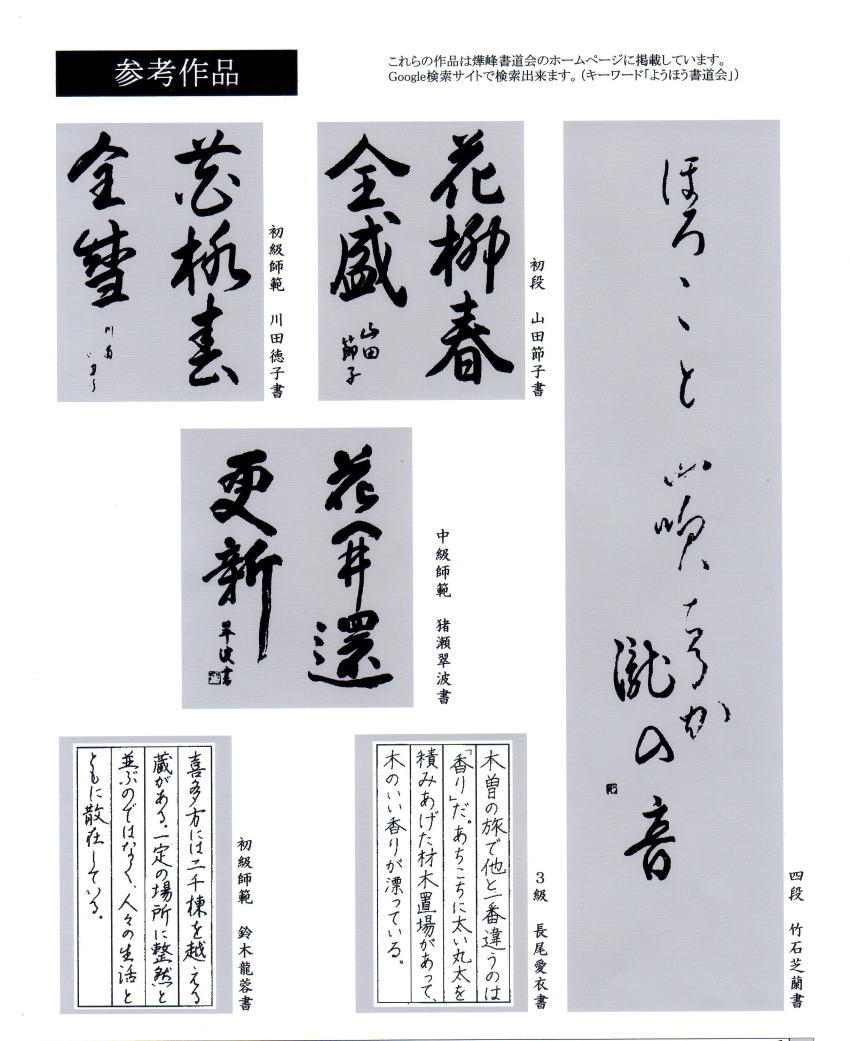 参考作品
これらの作品は燁峰書道会のホームページに掲載しています。
Google検索サイトで検索出来ます。（キーワード「ようほう書道会」）
ほろゝゝと
山吹ちるか
瀧の音
四段　竹石芝蘭書
花柳春
全盛
山田
節子
初段　山田節子書
花柳春
全盛
初級師範　川田徳子書
花開還
更新
翠波書
中級師範　猪瀬翠波書
木曽の旅で他と一番違うのは
「香り」だ。あちこちに太い丸太を
積みあげた材木置場があって、
木のいい香りが漂っている。
３級　長尾愛衣書
喜多方には二千棟を越える
蔵がある。一定の場所に整然と
並ぶのではなく、人々の生活と
ともに散在している。
初級師範　鈴木龍蓉書